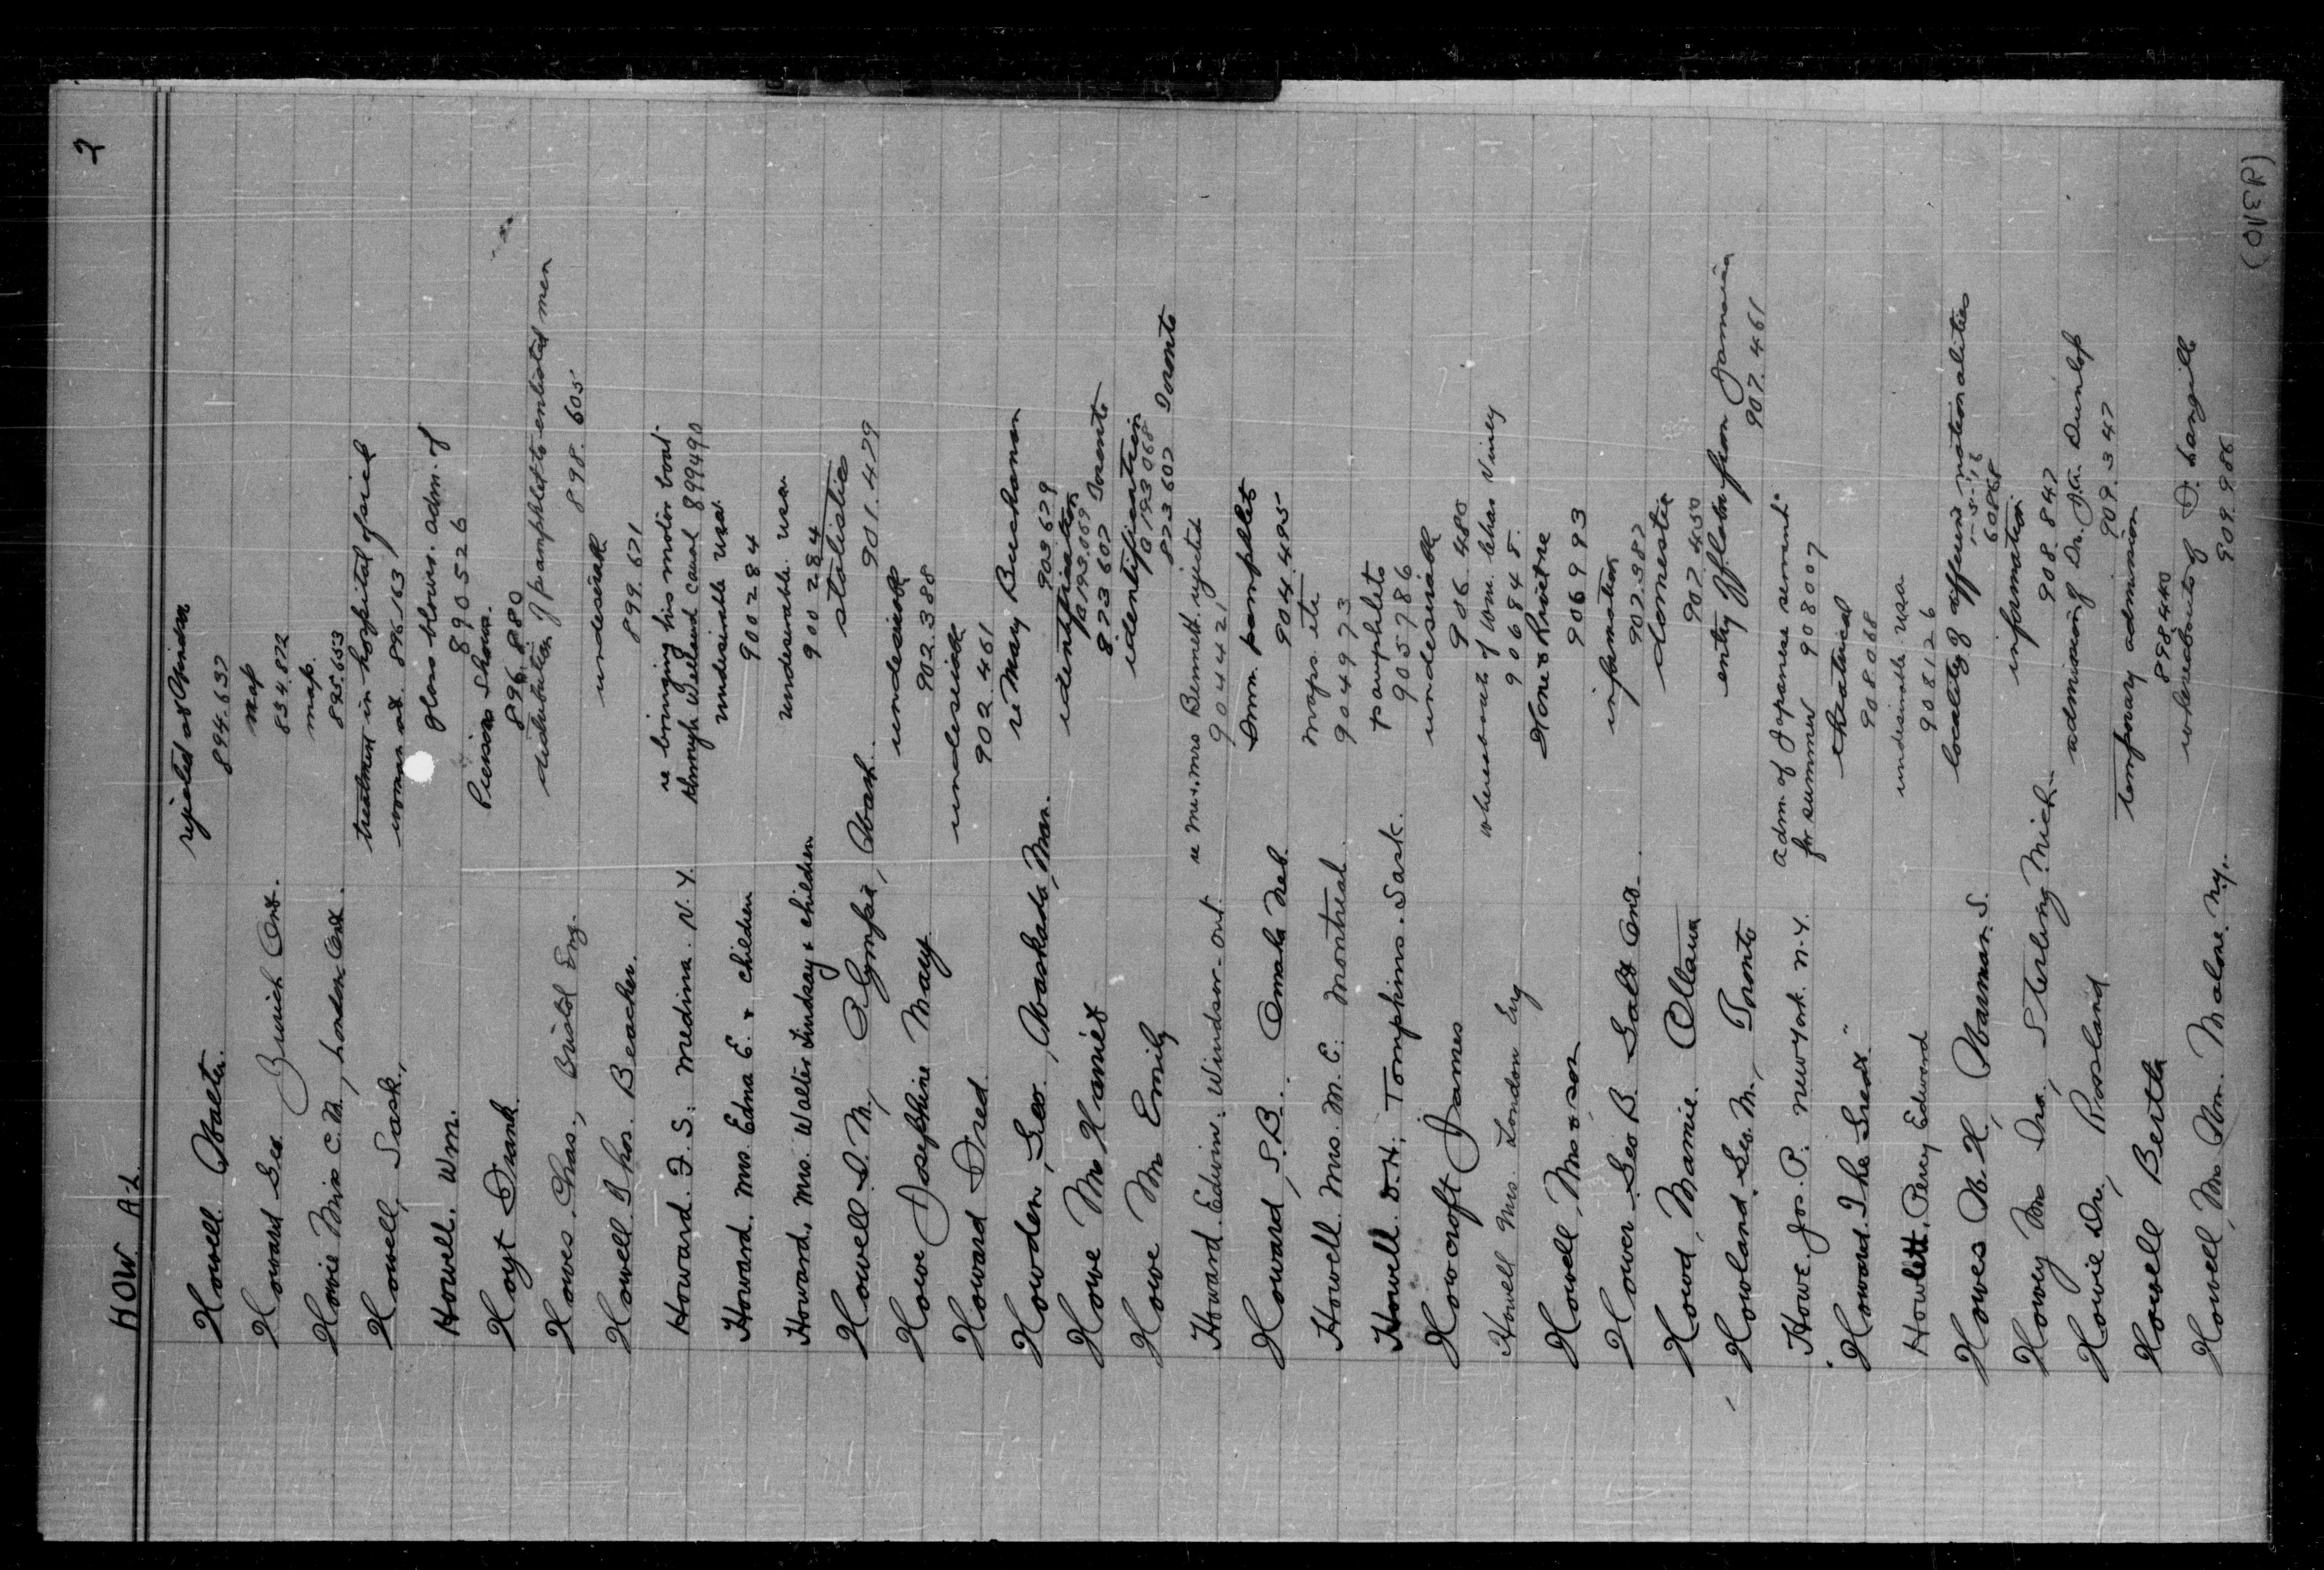 HOW A-L 2
Howell Walter. rejected at Windsor
894.637
Howard Geo. Zurich Ont. map
834.872
Howie Miss C.M., London Ont. map.
895.653
Howell, Sask., treatment in hospital of sick
woman at 896163
Howell. Wm. glass blower. adm. of
890526
Hoyt Frank Pierson Shows.
896.880
Howes. Chas., Bristol Eng. distribution of pamphlets to enlisted men
898.605
Howell Thos. Beacher. undesirable
899.671
Howard. F. S. Medina. N.Y. re bringing his motor boat
through Welland canal 899490
Howard. Mrs. Edna E. & children undesirable USA.
900284
Howard. Mrs. Walter Lindsay & children undesirable. USA
900284
Howell S. M., Olympia, Wash. statistics
901.479
Howe Josephine Mary undesirable
902.388
Howard Fred. undesirable
902.461
Howden, Geo., Waskada, Man. re Mary Buchanan
903679
Howe Mrs Harriet identification
a193.069
873607 Toronto
Howe Mrs Emily identification
a193068
873607 Toronto
Howard. Edwin. Windsor. Ont. re Mr. & Mrs Bennett rejected
904421
Howard, S.B. Omaha Neb. Imm. pamphlets
904.495
Howell Mrs. M. E. Montreal. maps etc
904973
Howell. D.H. Tompkins. Sask. pamphlets
905786
Howcroft James undesirable
906.480
Howell Mrs. London Eng whereabouts of Wm. Chas Viney
906848.
Howell, Mrs & son
906993
Hower Geo B. Galt Ont. information
907.387
Howd, Mamie. Ottawa domestic
907.450
Howland, Geo. M., Toronto entry of from Jamaica
907.461
Howe. Jos. P. New York. N.Y. adm. of Japanese servant
for summer 908007
"Howard The Great" theatrical
908068
Howlett, Percy Edward undesirable USA
908126
Howes W. H., locality of different nationalities
60868
Howey Mrs Sterling Mich. information
908.847
Howie Dr., Rossland admission of Dr. J.A. Dunlop
909.347
Howell Bertha temporary admission
898.440
Howell, Mrs Wm. Malone. N.Y. whereabouts of D. Langille
909.986
(OVER)